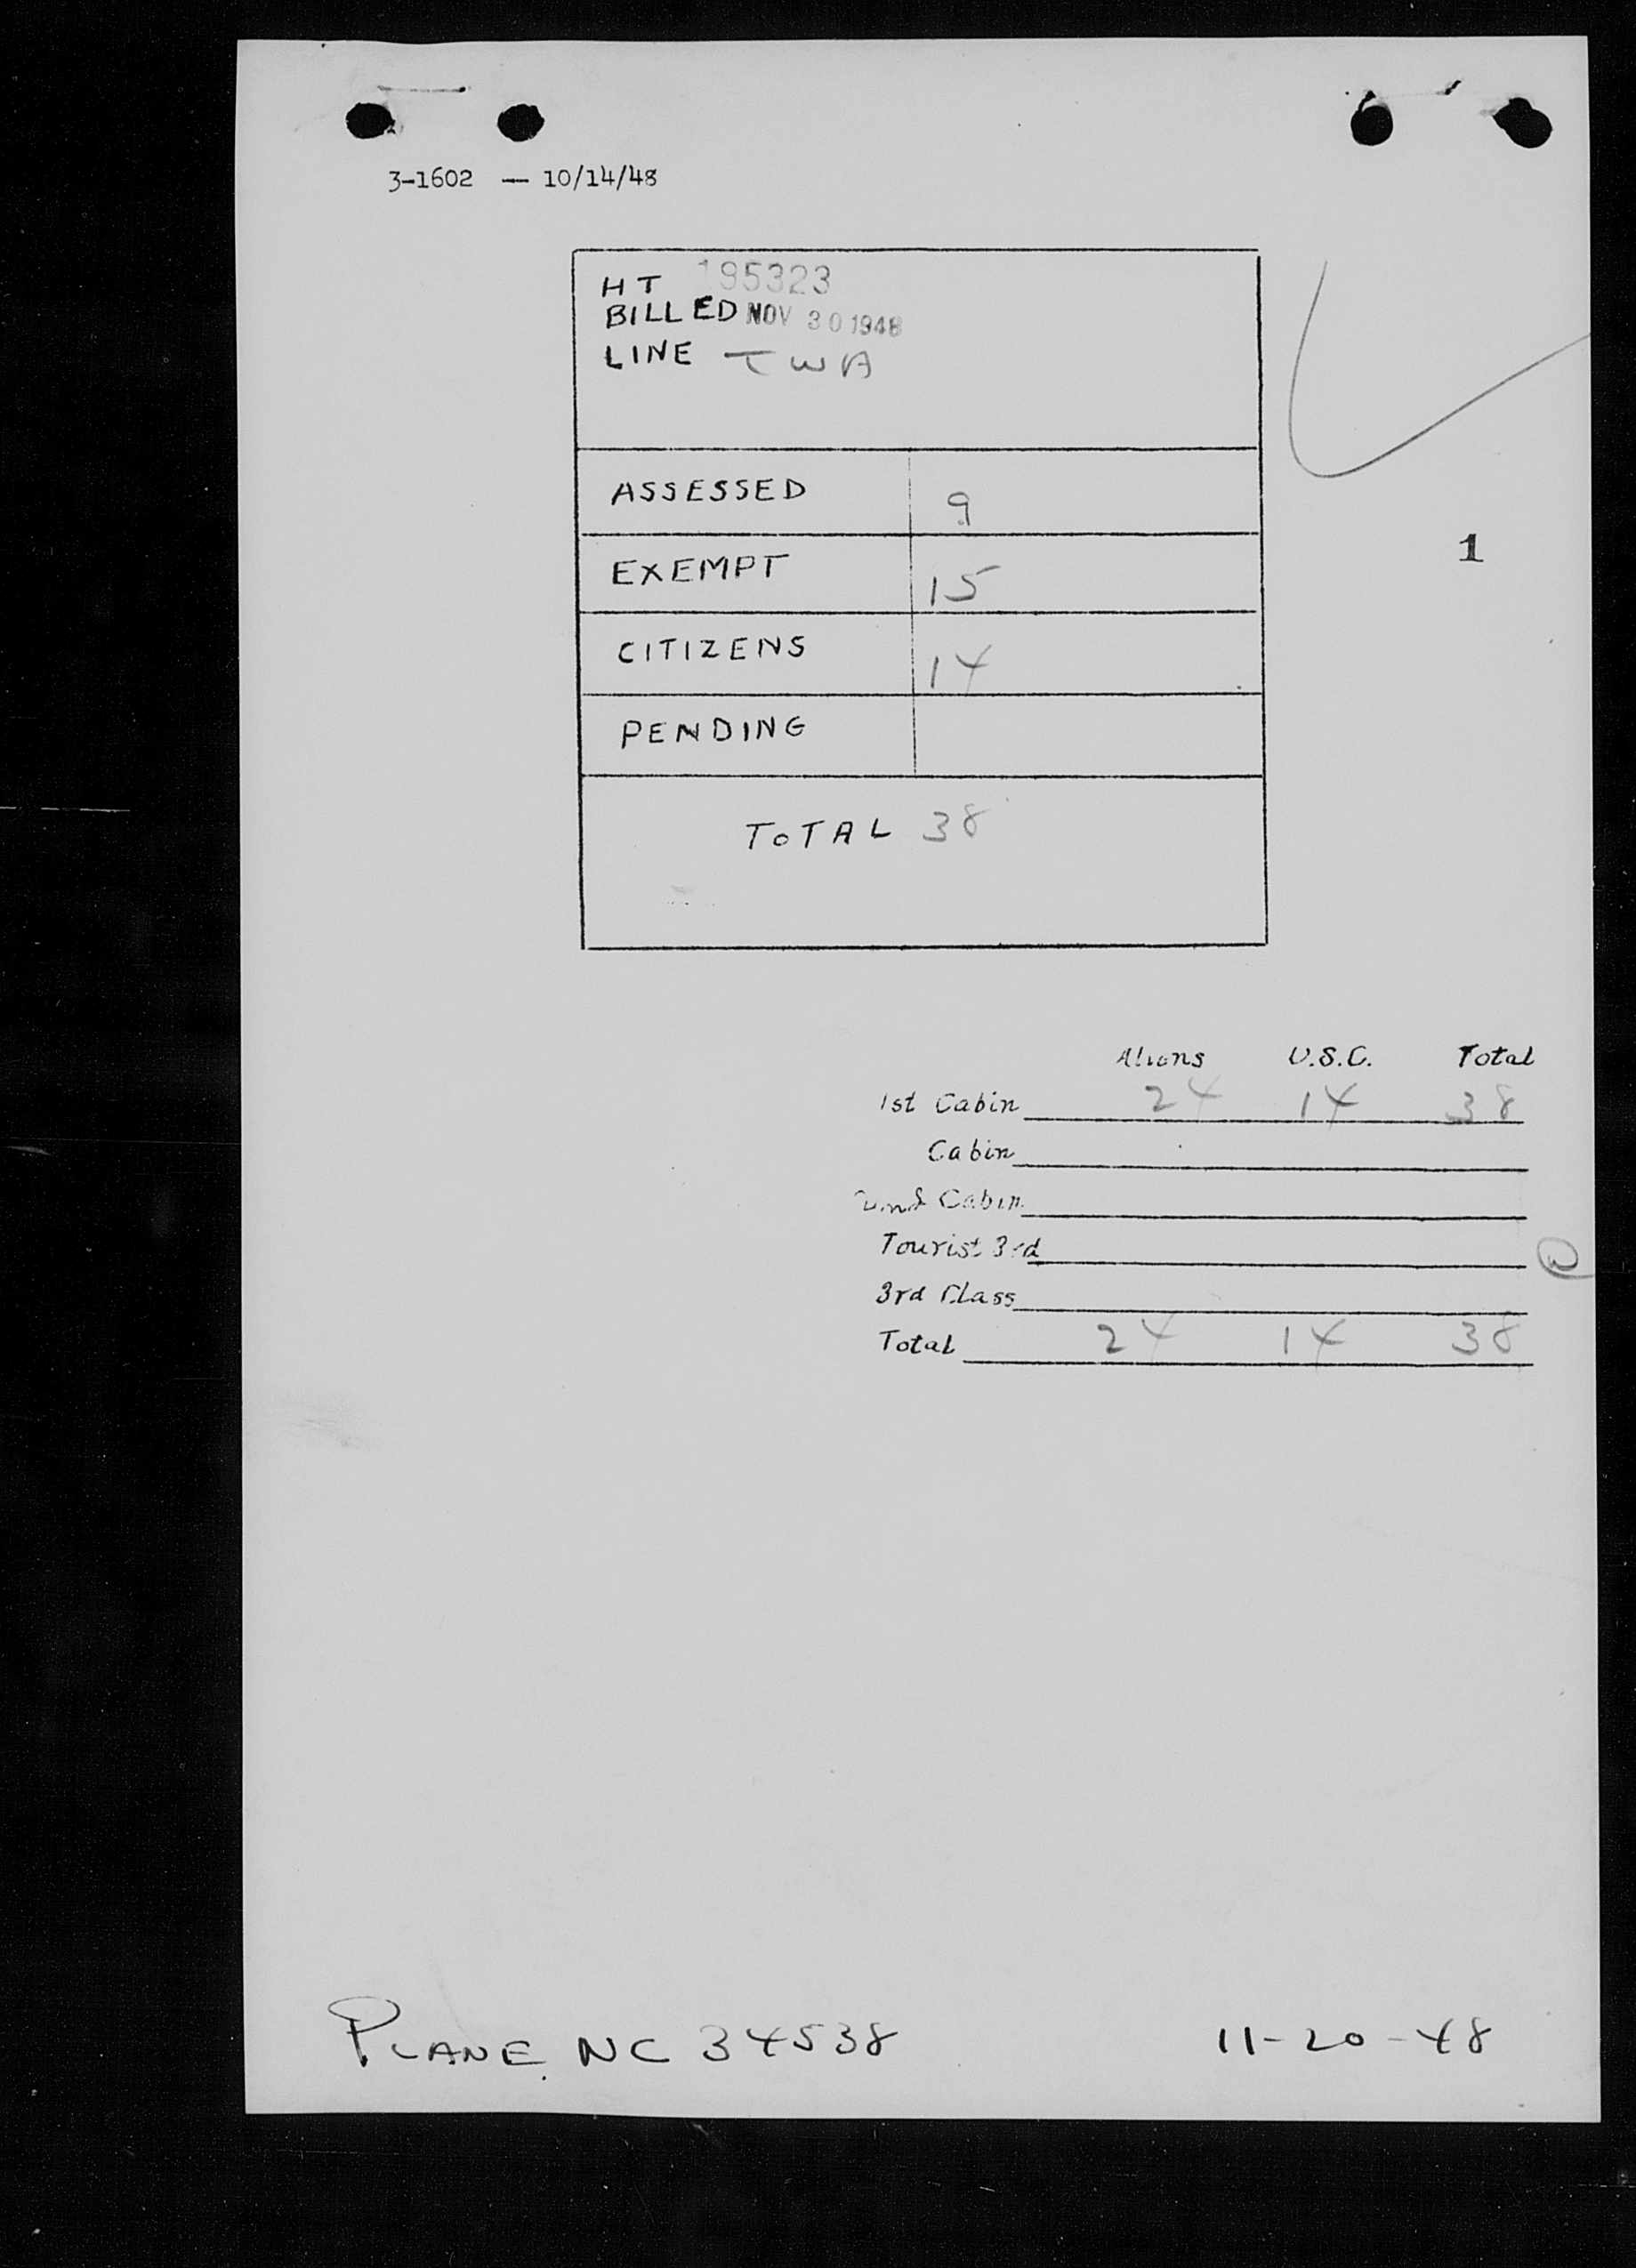 3-1602 — 10/14/48
HT 195323
BILLED NOV 30 1948
LINE TWA
ASSESSED 9
EXEMPT 15
CITIZENS 14
PENDING
TOTAL 38
1
Aliens U.S.C. Total
1st Cabin 24 14 38
Cabin
Cabin
Tourist 3rd
3rd Class
Total 24 14 38
PLANE NC 34538 11-20-48